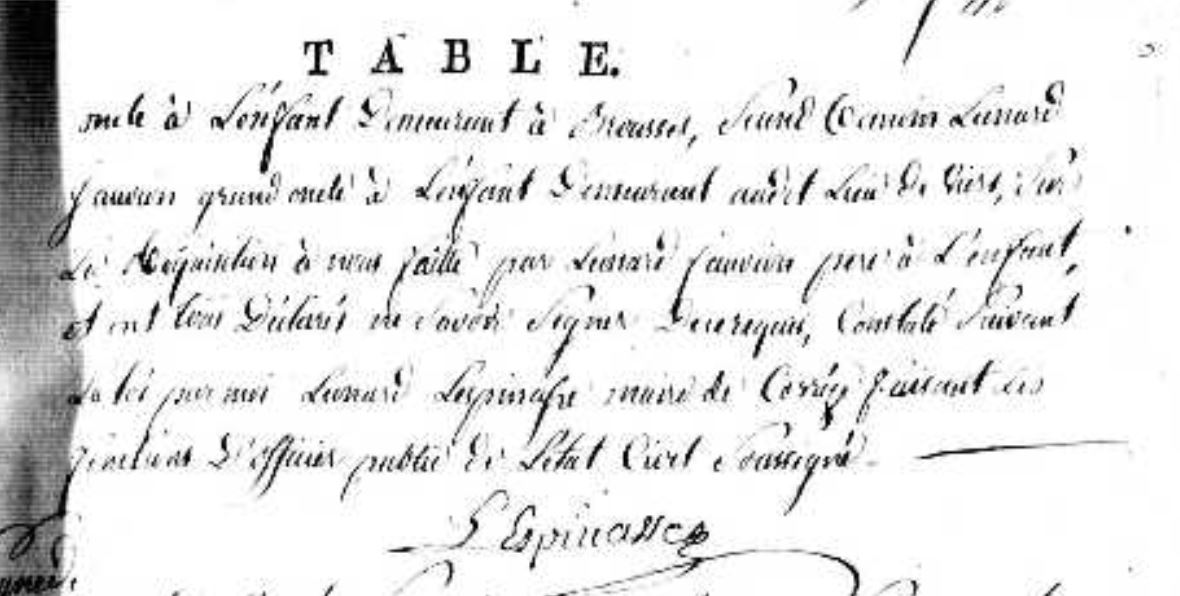 TABLE.
oncle à L'enfant Demeurant à Brousses, Second témoin Leonard
fauvien grand oncle à L'enfant Demeurant audit Lieu de Viers, Sur
La Requisition à nous faitte par Leonard fauvien pere à L'enfant,
et ont tous Déclarés ne Savoir Signer De ce requis, Constaté Suivant
La loi par moi Leonard Lespinasse maire de Corrèze faisant Les
fonctions D'officier public de L'état Civil Soussigné.
L'Espinasse